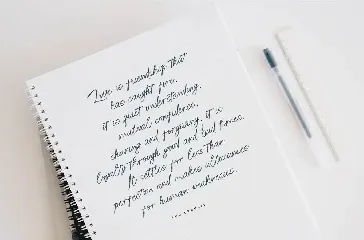 Love is friendship that
has caught you.
it is quiet understanding,
mutual confidence,
sharing and forgiving. it is
through good and bad times.
It settles for less than
perfection and makes allowances
for human weaknesses.